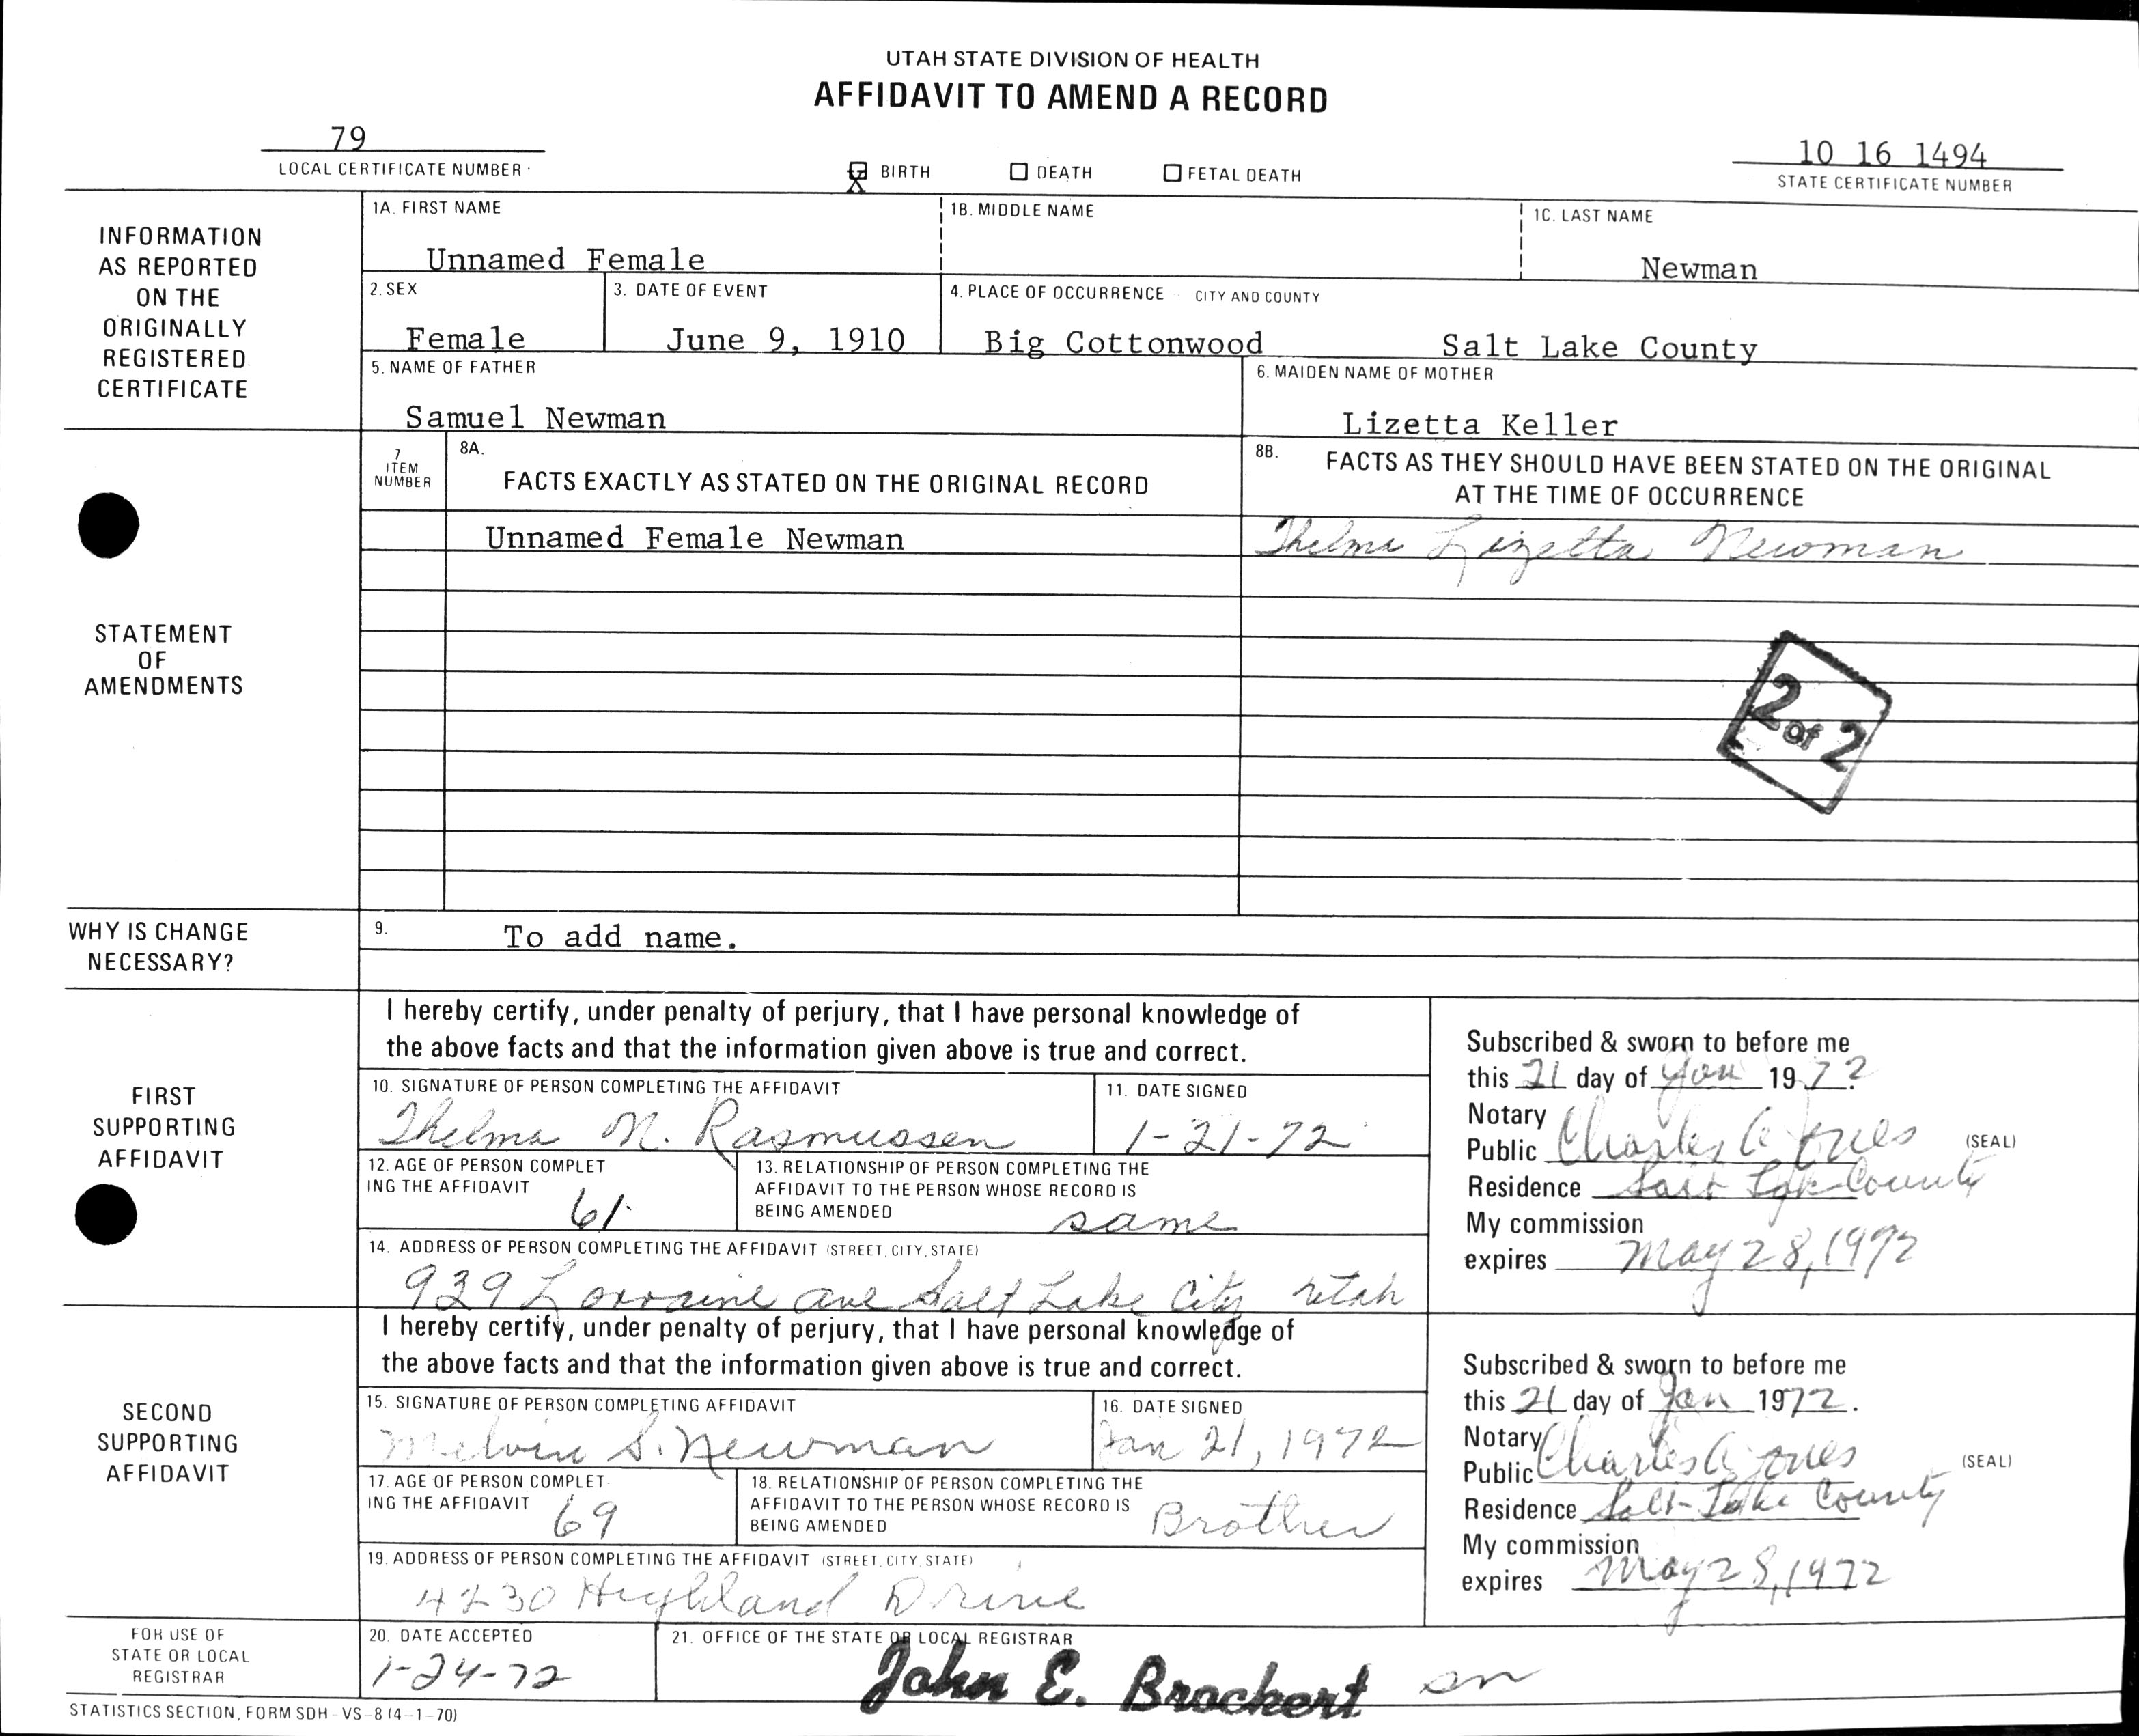 UTAH STATE DIVISION OF HEALTH
AFFIDAVIT TO AMEND A RECORD
79
LOCAL CERTIFICATE NUMBER
X BIRTH DEATH FETAL DEATH
10 16 1494
STATE CERTIFICATE NUMBER
INFORMATION AS REPORTED ON THE ORIGINALLY REGISTERED CERTIFICATE
1A. FIRST NAME
Unnamed Female
1B. MIDDLE NAME
1C. LAST NAME
Newman
2. SEX
Female
3. DATE OF EVENT
June 9, 1910
4. PLACE OF OCCURRENCE CITY AND COUNTY
Big Cottonwood Salt Lake County
5. NAME OF FATHER
Samuel Newman
6. MAIDEN NAME OF MOTHER
Lizetta Keller
STATEMENT OF AMENDMENTS
7 ITEM NUMBER
8A.
FACTS EXACTLY AS STATED ON THE ORIGINAL RECORD
8B. FACTS AS THEY SHOULD HAVE BEEN STATED ON THE ORIGINAL
AT THE TIME OF OCCURRENCE
Unnamed Female Newman
Thelma Lizetta Newman
2 of 2
WHY IS CHANGE NECESSARY?
9. To add name.
FIRST SUPPORTING AFFIDAVIT
I hereby certify, under penalty of perjury, that I have personal knowledge of
the above facts and that the information given above is true and correct.
10. SIGNATURE OF PERSON COMPLETING THE AFFIDAVIT
Thelma N. Rasmussen
11. DATE SIGNED
1-21-72
12. AGE OF PERSON COMPLET-
ING THE AFFIDAVIT 61
13. RELATIONSHIP OF PERSON COMPLETING THE
AFFIDAVIT TO THE PERSON WHOSE RECORD IS
BEING AMENDED same
14. ADDRESS OF PERSON COMPLETING THE AFFIDAVIT (STREET, CITY, STATE)
939 Lorraine ave Salt Lake City utah
Subscribed & sworn to before me
this 21 day of Jan 1972
Notary
Public Charles A Jones (SEAL)
Residence Salt Lake County
My commission
expires May 28, 1972
SECOND SUPPORTING AFFIDAVIT
I hereby certify, under penalty of perjury, that I have personal knowledge of
the above facts and that the information given above is true and correct.
15. SIGNATURE OF PERSON COMPLETING AFFIDAVIT
Melvin S. Newman
16. DATE SIGNED
Jan 21, 1972
17. AGE OF PERSON COMPLET-
ING THE AFFIDAVIT 69
18. RELATIONSHIP OF PERSON COMPLETING THE
AFFIDAVIT TO THE PERSON WHOSE RECORD IS
BEING AMENDED Brother
19. ADDRESS OF PERSON COMPLETING THE AFFIDAVIT (STREET, CITY, STATE)
4230 Highland Drive
Subscribed & sworn to before me
this 21 day of Jan 1972.
Notary
Public Charles A Jones (SEAL)
Residence Salt Lake County
My commission
expires May 28, 1972
FOR USE OF STATE OR LOCAL REGISTRAR
20. DATE ACCEPTED
1-24-72
21. OFFICE OF THE STATE OR LOCAL REGISTRAR
John E. Brockert
STATISTICS SECTION, FORM SDH-VS-8 (4-1-70)